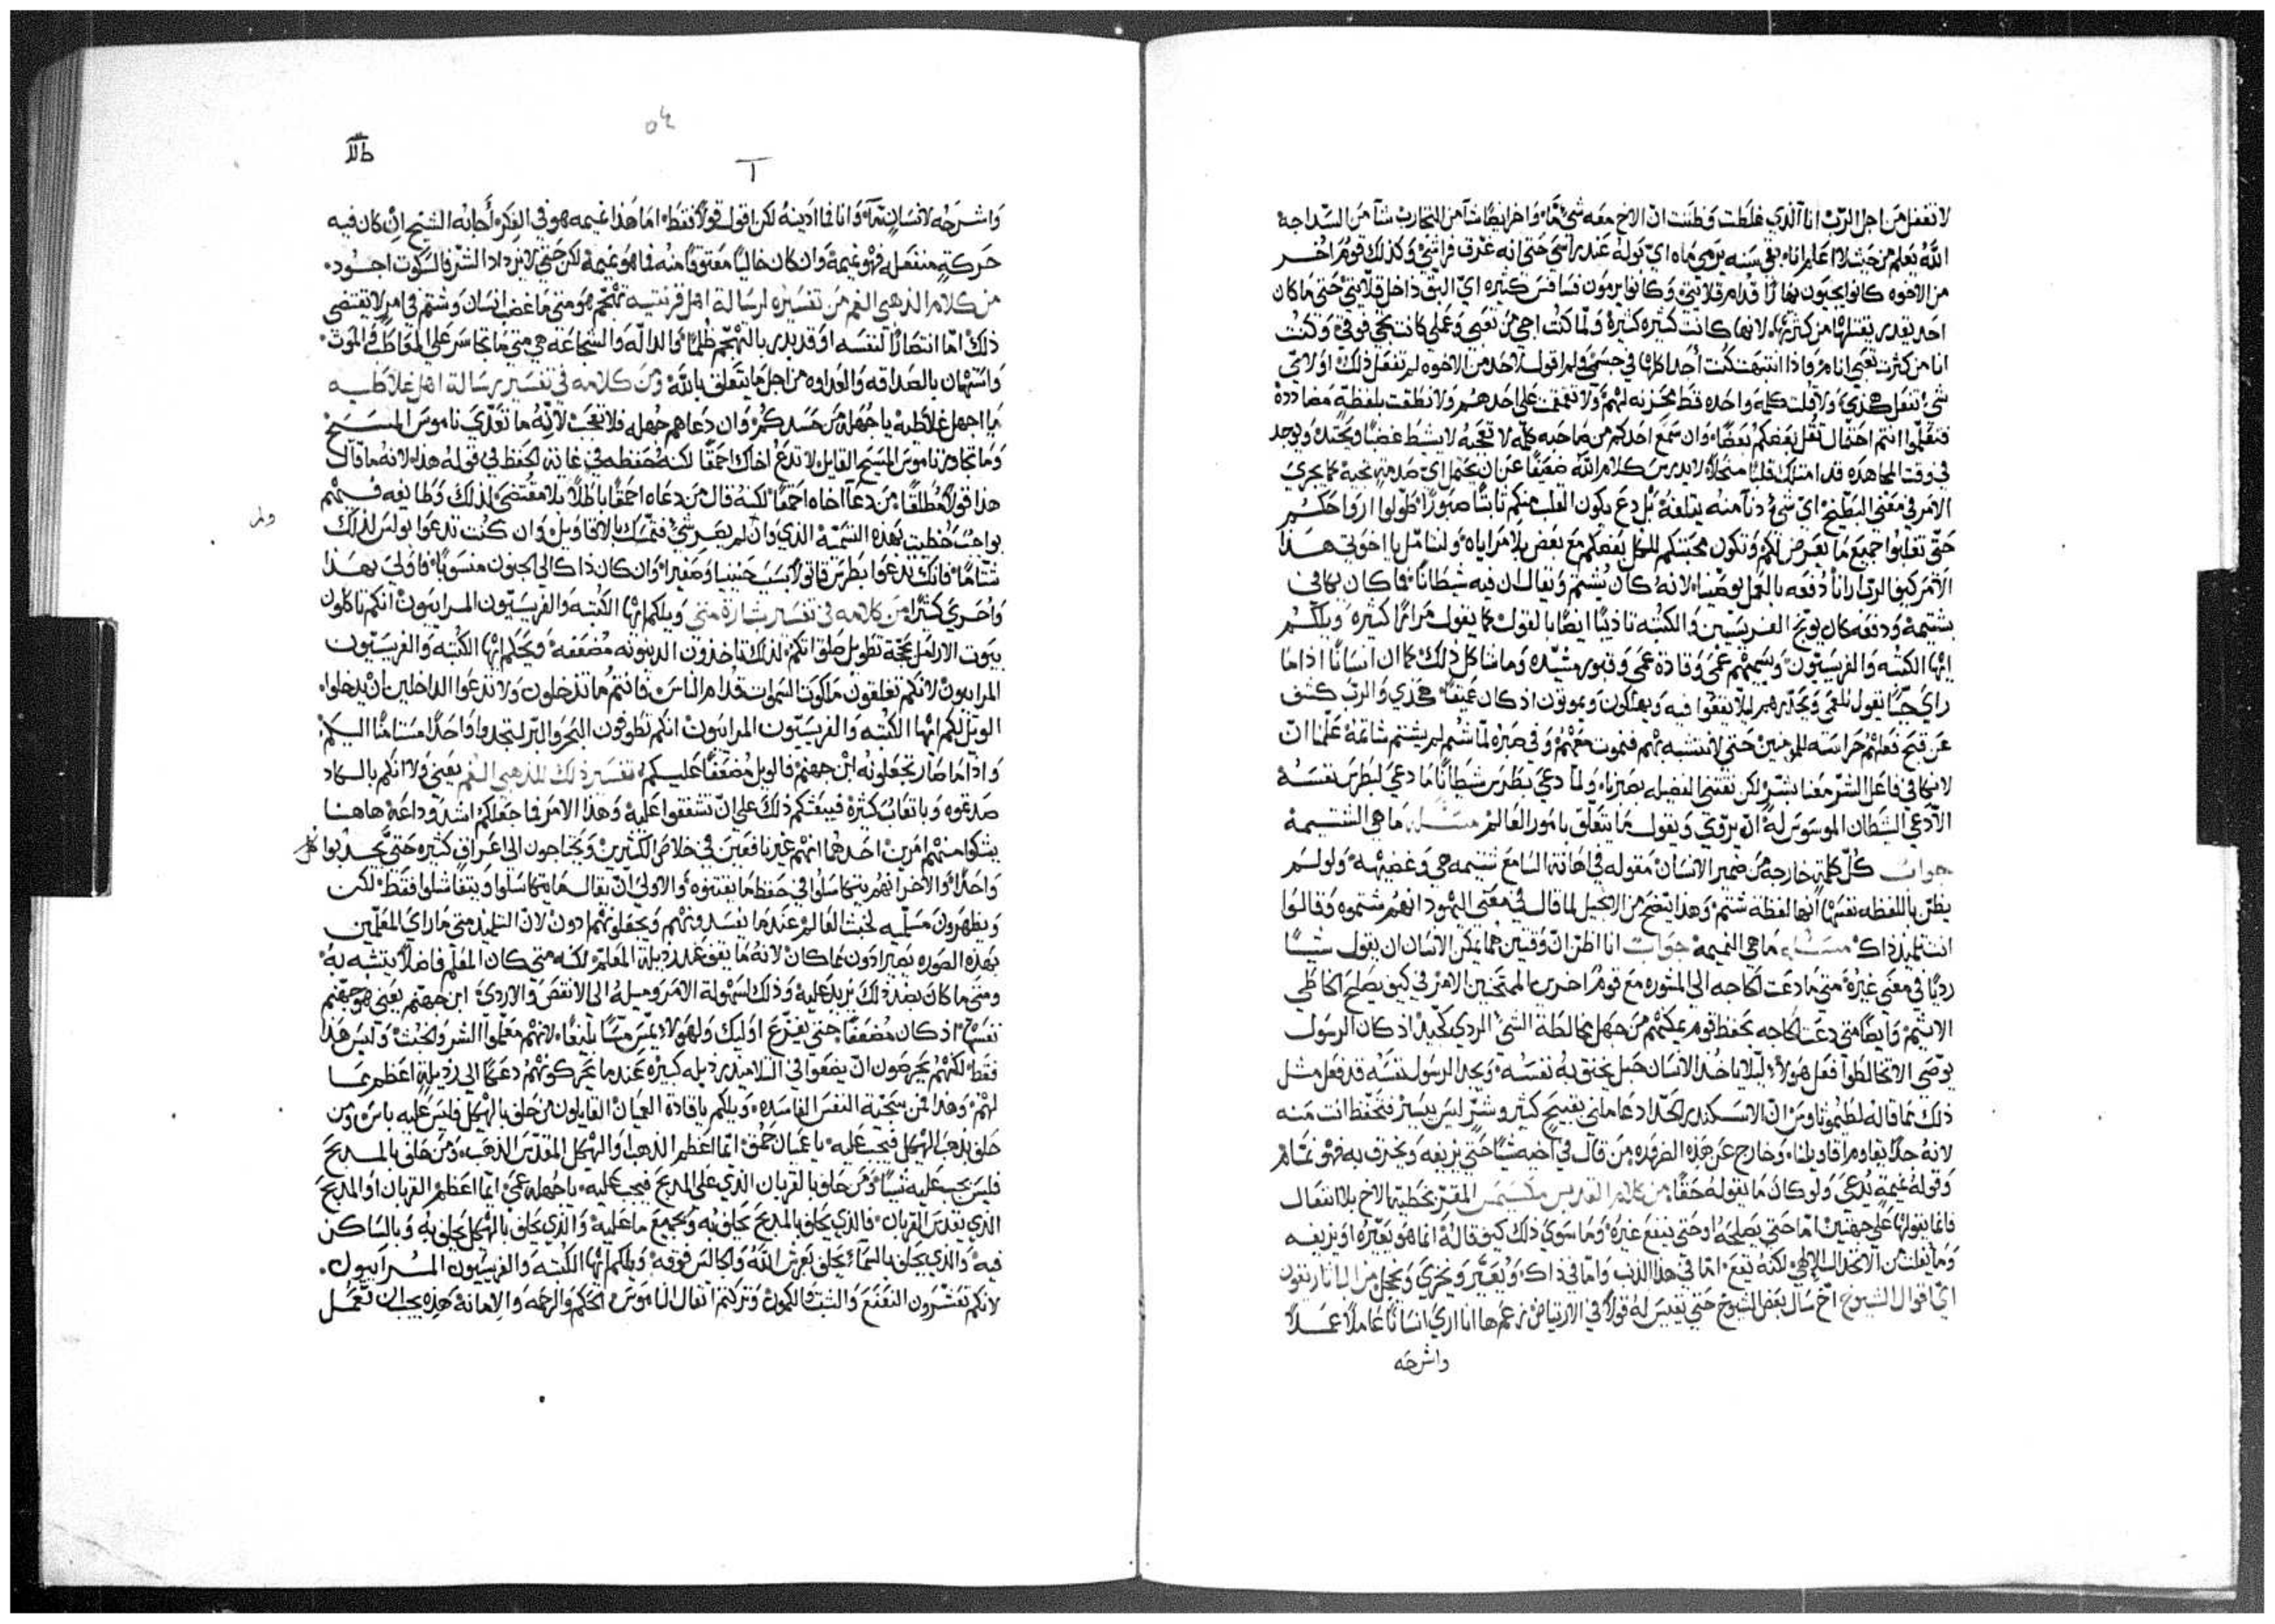 لا تفعل من اجل الربّ انا الذي غلطت وظننت ان الاخ معه شي مّا واخر ايضا شا من التجارب شا من السداجه
الله يعلم من حيث لا اعلم انا بقي سنه يرمي ماه اي بوله عند راسي حتى انه غرق فراشي وكذلك قوم اخر
من الاخوه كانوا يجيبون نهارا قدام قلايتي وكانوا يرمون فسافس كثيره اي البق داخل قلايتي حتى ما كان
احد يقدر يقتلها من كثرتها لانها كانت كثيره كثيرة ولما كنت اجي من تعبي وعملي كانت تجي فوقي وكنت
انا من كثرت تعبي انام واذا انتبهت كنت اجدها كلها في جسمي ولم اقول لاحد من الاخوه لم تفعل ذلك او لاي
شي تفعل هكذي ولا قلت كلمه واحده قط محزنه لهم ولا تقمقمت على احدهم ولا نطقت بلفظة مضاددة
فتعلموا انتم احتمال ثقل بعضكم بعضا وان سمع احدكم من صاحبه كلمه لا تعجبه لا ينشط غضبا ويحتد ويوجد
في وقت المجاهده قد امتلك قلبا منحلا لا يدرس كلام الله ضعيفا عن ان يحتمل اي صدمة تجيه كما يجري
الامر في معنى البطيخ اي شي دنا منه يبلغه بل دع يكون القلب منكم ثابتا صبورا طولوا ارواحكم
حتى تغلبوا جميع ما يعرض لكم وتكون محبتكم للكل بعضكم مع بعض بلا مراياه ولنتامل يا اخوتي هذا
الامر كيف الرب ارانا دفعه بالعمل بوصفنا لانه كان يشتم ويقال ان فيه شيطانا فما كان يكافي
بشتيمة ودفعه كان يوبخ الفريسين والكتبه تاديبا ايضا بالقول كما يقول مرارا كثيره ويلكم
ايها الكتبه والفريسيون ويسميهم عمي وقادة عمي وقبور مشيده وما شاكل ذلك كما ان انسانا اذا ما
راي جبا يقول للعمى ويحذرهم ليلا يقعوا فيه ويهلكون ويموتون اذ كان عميقا هكذي والرب كشف
عن قبح فعلهم حراسته للمومنين حتى لا نتشبه بهم فنموت معهم وفي صبره لما شتم لم يشتم شاتمه علّمنا ان
لا نكافي فاعل الشر معنا بشر لكن نقتني الفضيله بصبرنا ولما دعي بطرس شيطانا ما دعي لبطرس نفسه
الا دعي الشيطان الموسوس له ان يرتوي ويقول ما يتعلق بامور العالم مسئله ما هي الشتيمة
جواب كل كلمة خارجه من ضمير الانسان مقوله في اهانة السامع شتيمه هي وغضيهه ولو لم
يظن باللفظه نفسها انها لفظة شتم وهذا يتضح من الانجيل لما قال في معنى اليهود انهم شتموه وقالوا
انت تلميذ ذاك مسئله ما هي النميمة جواب انا اظن ان وقتين هما يمكن الانسان ان يقول شيئا
رديا في معنى غيره متى ما دعت الحاجه الى المشوره مع قوم اخرين الممتحنين الامر في كيف يصلح الخاطي
الاثيم وايضا متى دعت الحاجه بحفظ قوم يمكنهم من جهل مخالطة الشي الردي كجيد اذ كان الرسول
يوصي الا تخالطوا فعل هولا ليلا ياخذ الانسان حبل يخنق به نفسه ويجد الرسول نفسه قد فعل مثل
ذلك كما قاله لطيموثاوس ان الاسكندر الحداد عاملني بقبيح كثير وشر ليس بيسير فتحفظ انت منه
لانه جدا يقاوم اقاويلنا وخارج عن هذه الضروره من قال في اخيه شيا حتى يزيفه ويحترف به فهو نمام
وقوله نميمة يدعي ولو كان ما يقوله حقا من كلام القديس مكسيمس المقترّ بخطية الاخ بلا انتقال
فانما يقولها على جهتين اما حتى يصلحه او حتى ينفع غيره وما سوى ذلك كيف قاله انما هو يعيره او يزيفه
وما يفلت من الانخذال الالهي لكنه يقع اما في هذا الذنب واما في ذاك ويعير ويخزي ويخجل من الباتاريقون
اي اقوال الشيوخ اخ سال بعض الشيوخ حتى يقيس له قولا في الارتياض زعم ها انا اري انسانا عاملا عملا
واشرحه
٥٤
واشرحه لانسان ثم وانا فما ادينه لكن اقول قولا فقط اما هذا نميمه هو في الفكر أجابه الشيخ ان كان فيه
حركة منفعله فهو نميمة وان كان خاليا معتوقا منه فما هو نميمة لكن حتى لا يزداد الشر فالسكوت اجود
من كلام الذهبي الفم من تفسيره لرسالة اهل قرنتيه تهجّم هو متى ما غضب انسان وشتم في امر لا يقتضي
ذلك اما انتصارا لنفسه او قد يدري بالتهجم ظلما والدالّه والشجاعة هي متى ما تجاسر على المخاطب والموت
واستهان بالصداقه والعداوه من اجل ما يتعلق بالله ومن كلامه في تفسير رسالة اهل غلاطيه
يا اجهل غلاطيه يا جهلا من حسدكم وان دعاهم جهله فلا تعجب لانه ما تعدى ناموس المسيح
وما تجاوز ناموس المسيح القايل لا تدع اخاك احمقا لكنه حفظه في غاية الحفظ في قوله هذا لانه ما قال
هذا قولا مطلقا من دعا اخاه احمقا لكنه قال من دعاه احمقا باطلا بلا مقتضى لذلك وطايفه فيهم
بواجب خطيت بهذه الشتمة الذي وان لم يضر شي تمسك بالاقاويل وان كنت تدعوا بولس لذلك
شتّاما فانك تدعوا بطرس قاتولا بسبب حنينيا وصفيرا وان كان ذاك الى الجنون منسوبا فاولى بهذا
واحرى كثيرا من كلامه في تفسير بشارة متى ويلكم ايها الكتبه والفريسيون المرايون انكم تاكلون
بيوت الارامل بحجة تطويل صلواتكم لذلك تاخذون الدينونه مضعفه ويحكم ايها الكتبه والفريسيون
المرايون لانكم تغلقون ملكوت السموت قدام الناس فانتم ما تدخلون ولا تدعوا الداخلين ان يدخلوا
الويل لكم ايها الكتبه والفريسيون المرايون انكم تطوفون البحر والبر لتجدوا واحدا مستامنا اليكم
واذا ما صار تجعلونه ابن جهنم فالويل مضعفا عليكم تفسير ذلك للذهبي الفم يعني ولا انكم بالكاد
صدتموه وباتعاب كثيرة فيبعثكم ذلك على ان تشفقوا عليه وهذا الامر فما جعلكم اشد وداعة هاهنا
يشكوا منهم امرين احدهما انهم غير نافعين في خلاص الكثيرين ويحتاجون الى اعراق كثيره حتى يجذبوا كل
واحدا والاخر انهم يتكاسلوا في حفظ ما يقتنوه والاولى ان يقال ما يتكاسلوا ويتفاشلوا فقط لكن
ويظهرون مسلميه لخبث العالم عندما يفسدونهم ويجعلونهم ادون لان التلميذ متى ما راي المعلمين
بهذه الصوره يصير ادون مما كان لانه ما يقف عند رذيلة المعلم لكنه متى كان المعلم فاضلا يتشبه به
ومتى ما كان بضد ذلك يزيد عليه وذلك لسهولة الامر وميله الى الانقص والاردي ابن جهنم يعني هو جهنم
نفسها اذ كان مضعفا حتى يفزع اوليك ولهولا يمس مسا بليغا لانهم معلموا الشر والخبث وليس هذا
فقط لكنهم يحرصون ان يضعوا في التلاميذ رذيله كبيره عندما يحركونهم دعما الى رذيلة اعظم مما
لهم وهذا فمن سجية النفس الفاسده ويلكم يا قادة العميان القايلون من حلف بالهيكل فليس عليه باس ومن
حلف بذهب الهيكل فيجب عليه يا عميان حمق ايما اعظم الذهب او الهيكل المقدس الذهب ومن حلف بالمذبح
فليس يجب عليه شيا ومن حلف بالقربان الذي على المذبح فيجب عليه يا جهله عمي ايما اعظم القربان او المذبح
الذي يقدس القربان فالذي يحلف بالمذبح يحلف به وبجميع ما عليه والذي يحلف بالهيكل يحلف به وبالساكن
فيه والذي يحلف بالسماء يحلف بعرش الله والجالس فوقه ويلكم ايها الكتبه والفريسيون المرايون
لانكم تعشرون النعنع والشبث والكمون وتركتم اثقال الناموس الحكم والرحمه والامانة هذه يجب ان تعمل